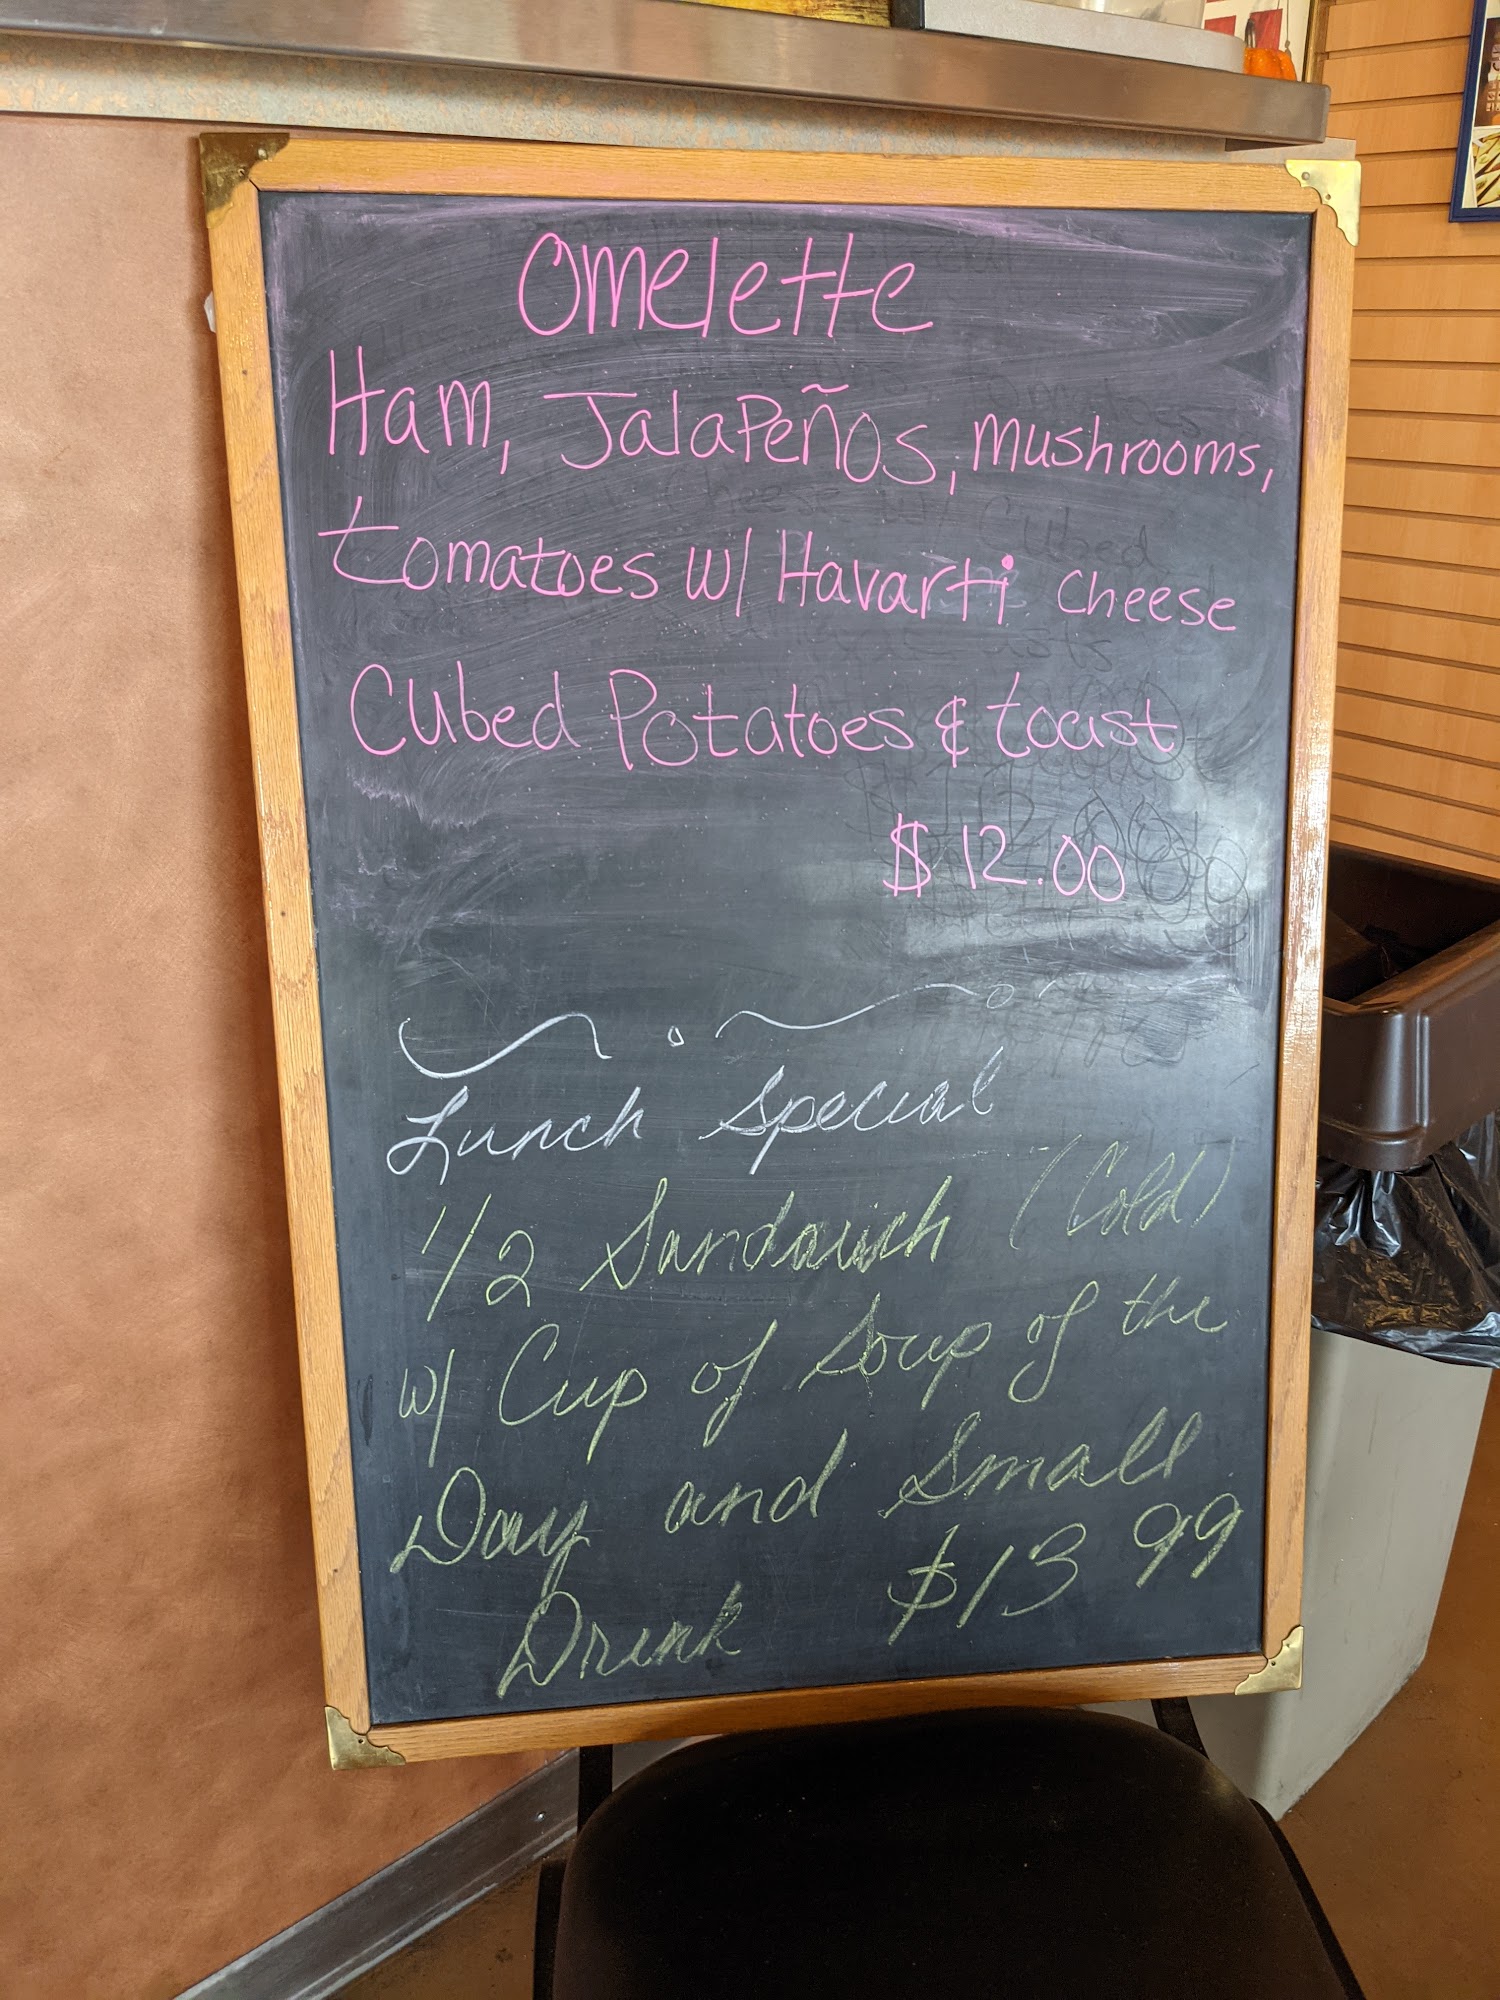 Omelette
Ham, Jalapeños, mushrooms,
tomatoes w/ Havarti cheese
Cubed Potatoes & toast
$12.00
Lunch Special
1/2 Sandwich (Cold)
w/ Cup of Soup of the
Day and Small
Drink $13 99